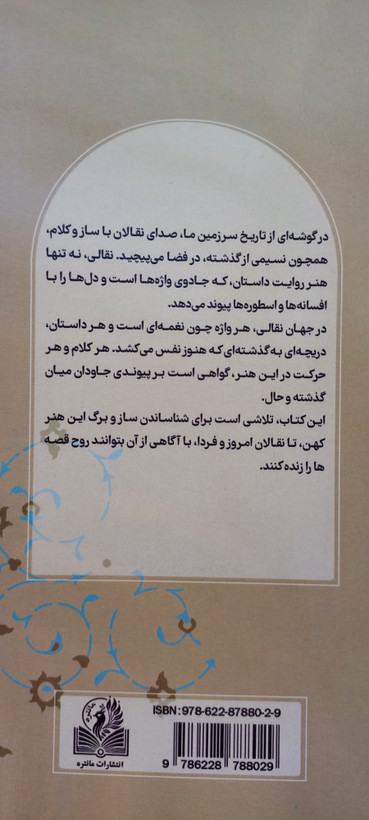 در گوشه‌ای از تاریخ سرزمین ما، صدای نقالان با ساز و کلام،
همچون نسیمی از گذشته، در فضا می‌پیچید. نقالی، نه تنها
هنر روایت داستان، که جادوی واژه‌ها است و دل‌ها را با
افسانه‌ها و اسطوره‌ها پیوند می‌دهد.
در جهان نقالی، هر واژه چون نغمه‌ای است و هر داستان،
دریچه‌ای به گذشته‌ای که هنوز نفس می‌کشد. هر کلام و هر
حرکت در این هنر، گواهی است بر پیوندی جاودان میان
گذشته و حال.
این کتاب، تلاشی است برای شناساندن ساز و برگ این هنر
کهن، تا نقالان امروز و فردا، با آگاهی از آن بتوانند روح قصه
ها را زنده کنند.
ISBN: 978-622-87880-2-9
9 786228 788029
مانتره
انتشارات مانتره